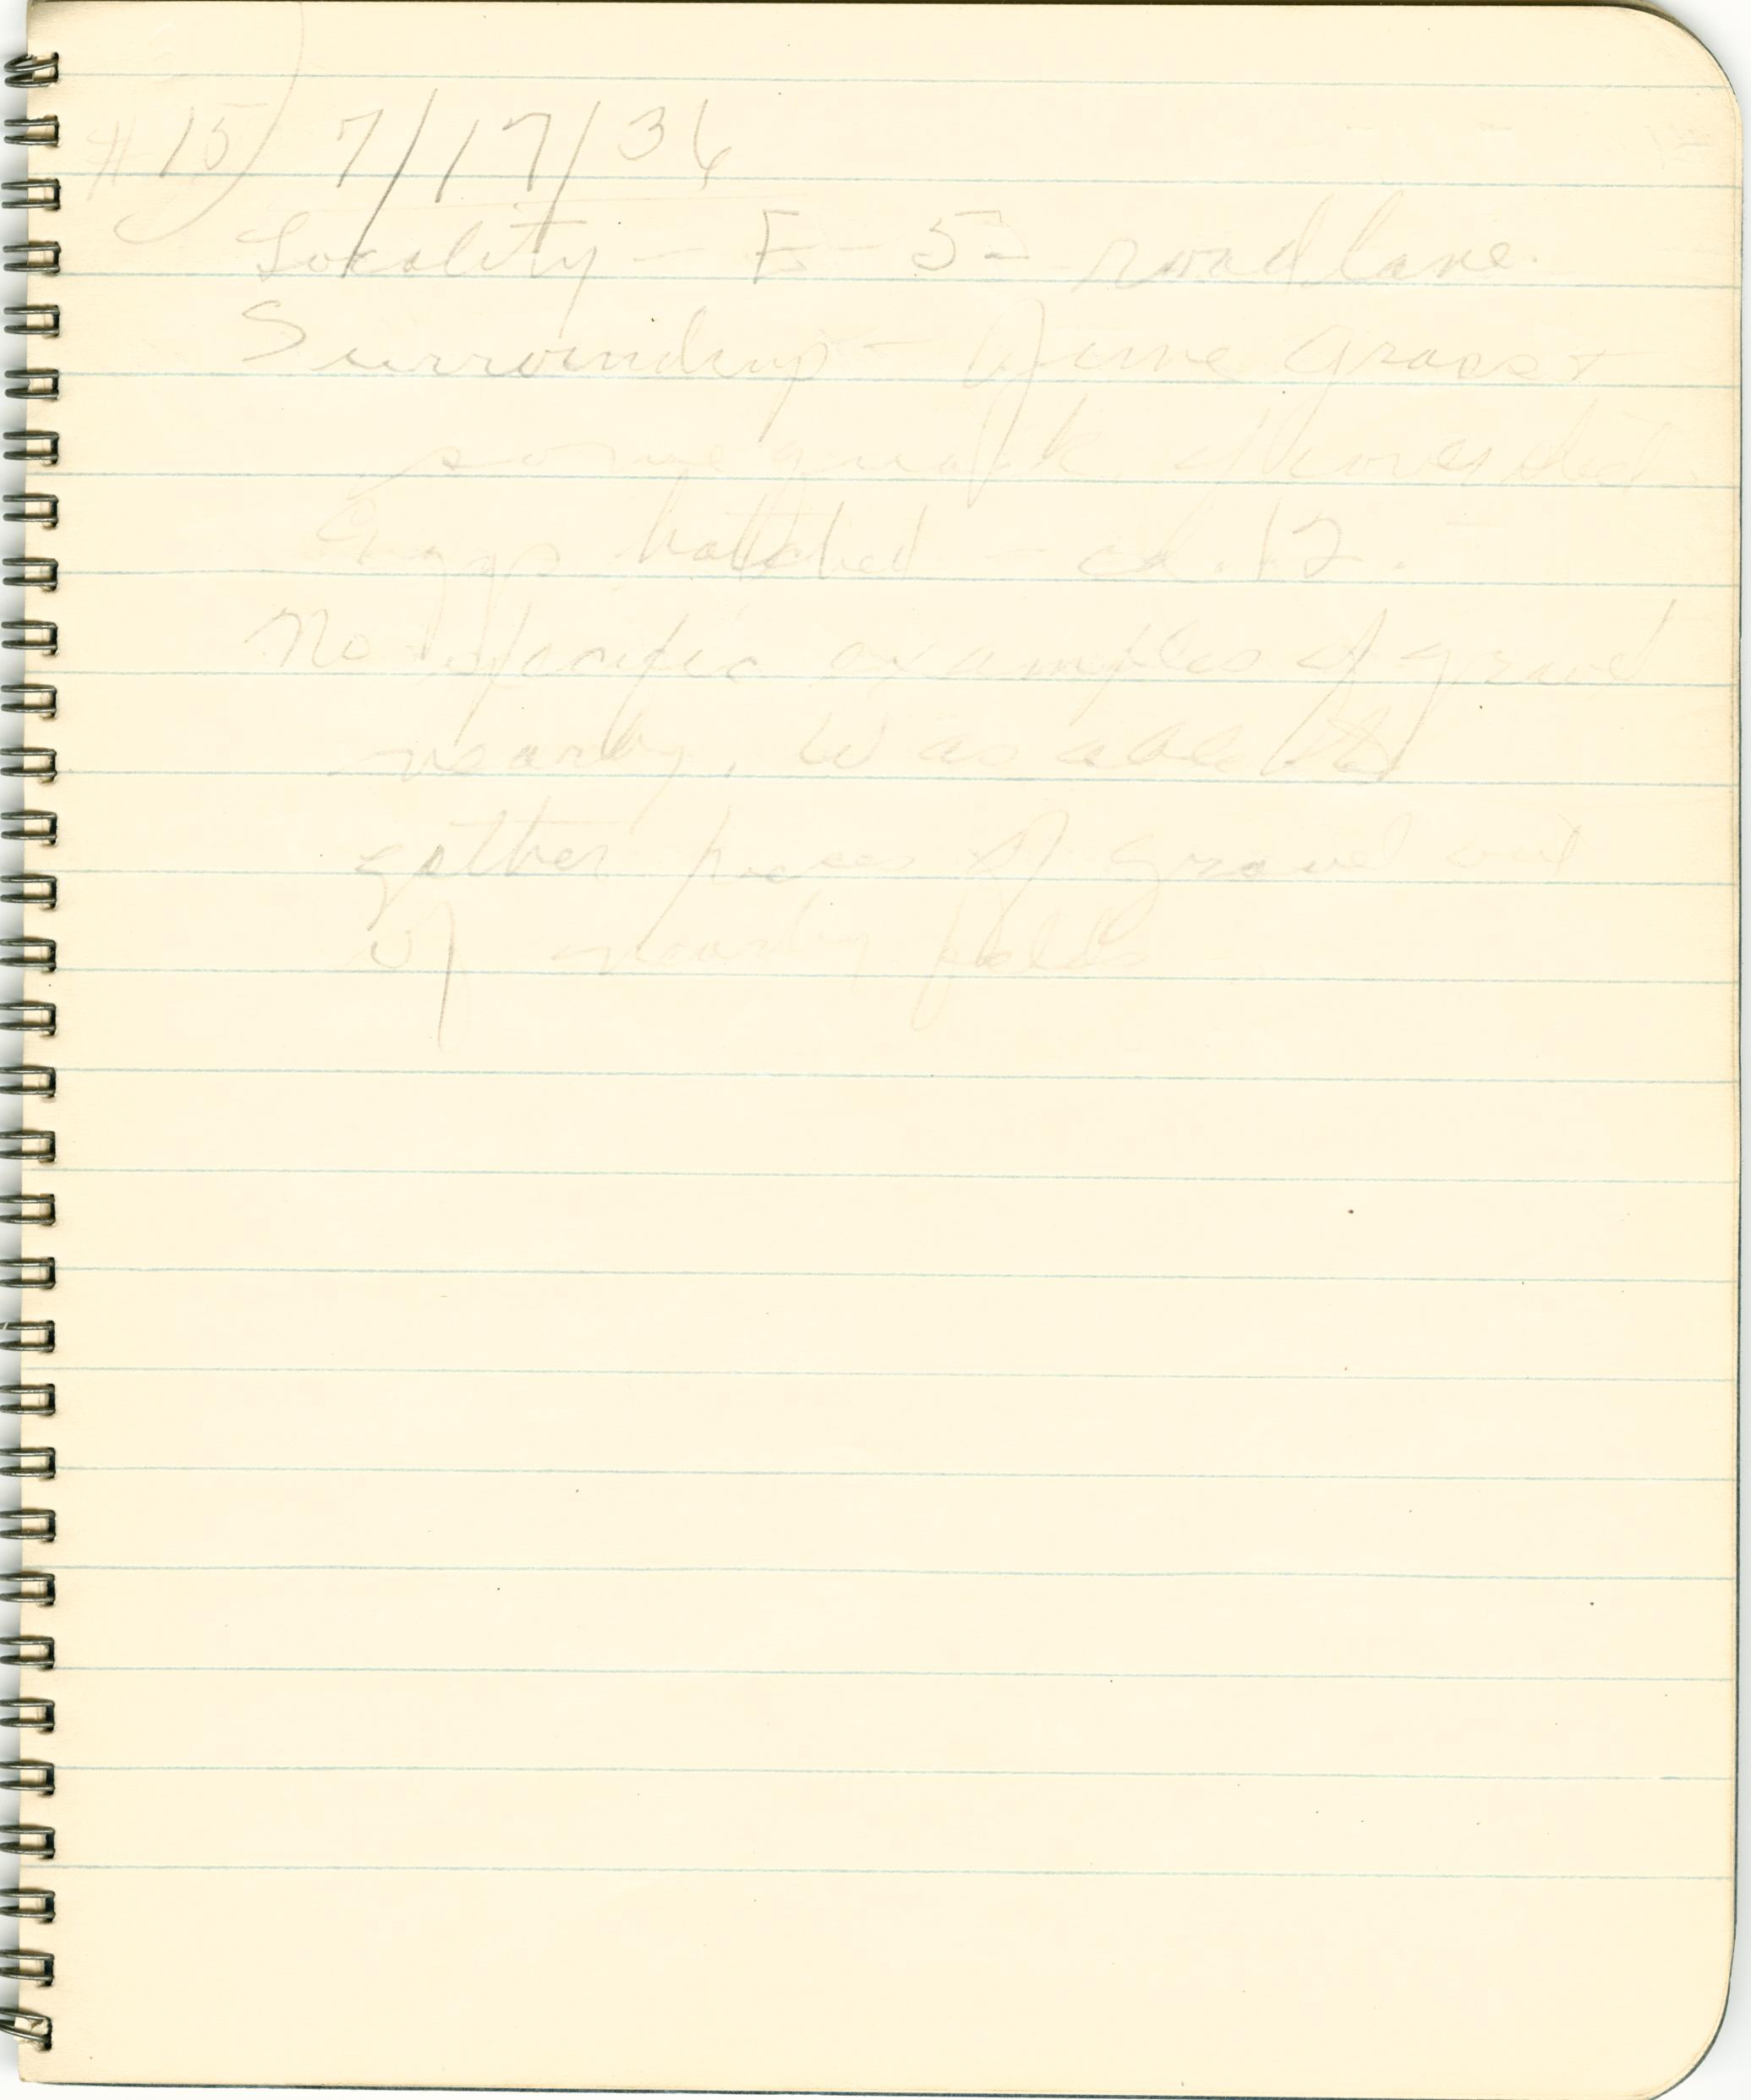 #15) 7/17/36
Locality - E - 52 road lane.
Surroundings - June grass +
some quack
Eggs hatched - ca. 12.
No specific examples of gravel
nearby. Was able to
gather pieces of gravel out
of nearby fields